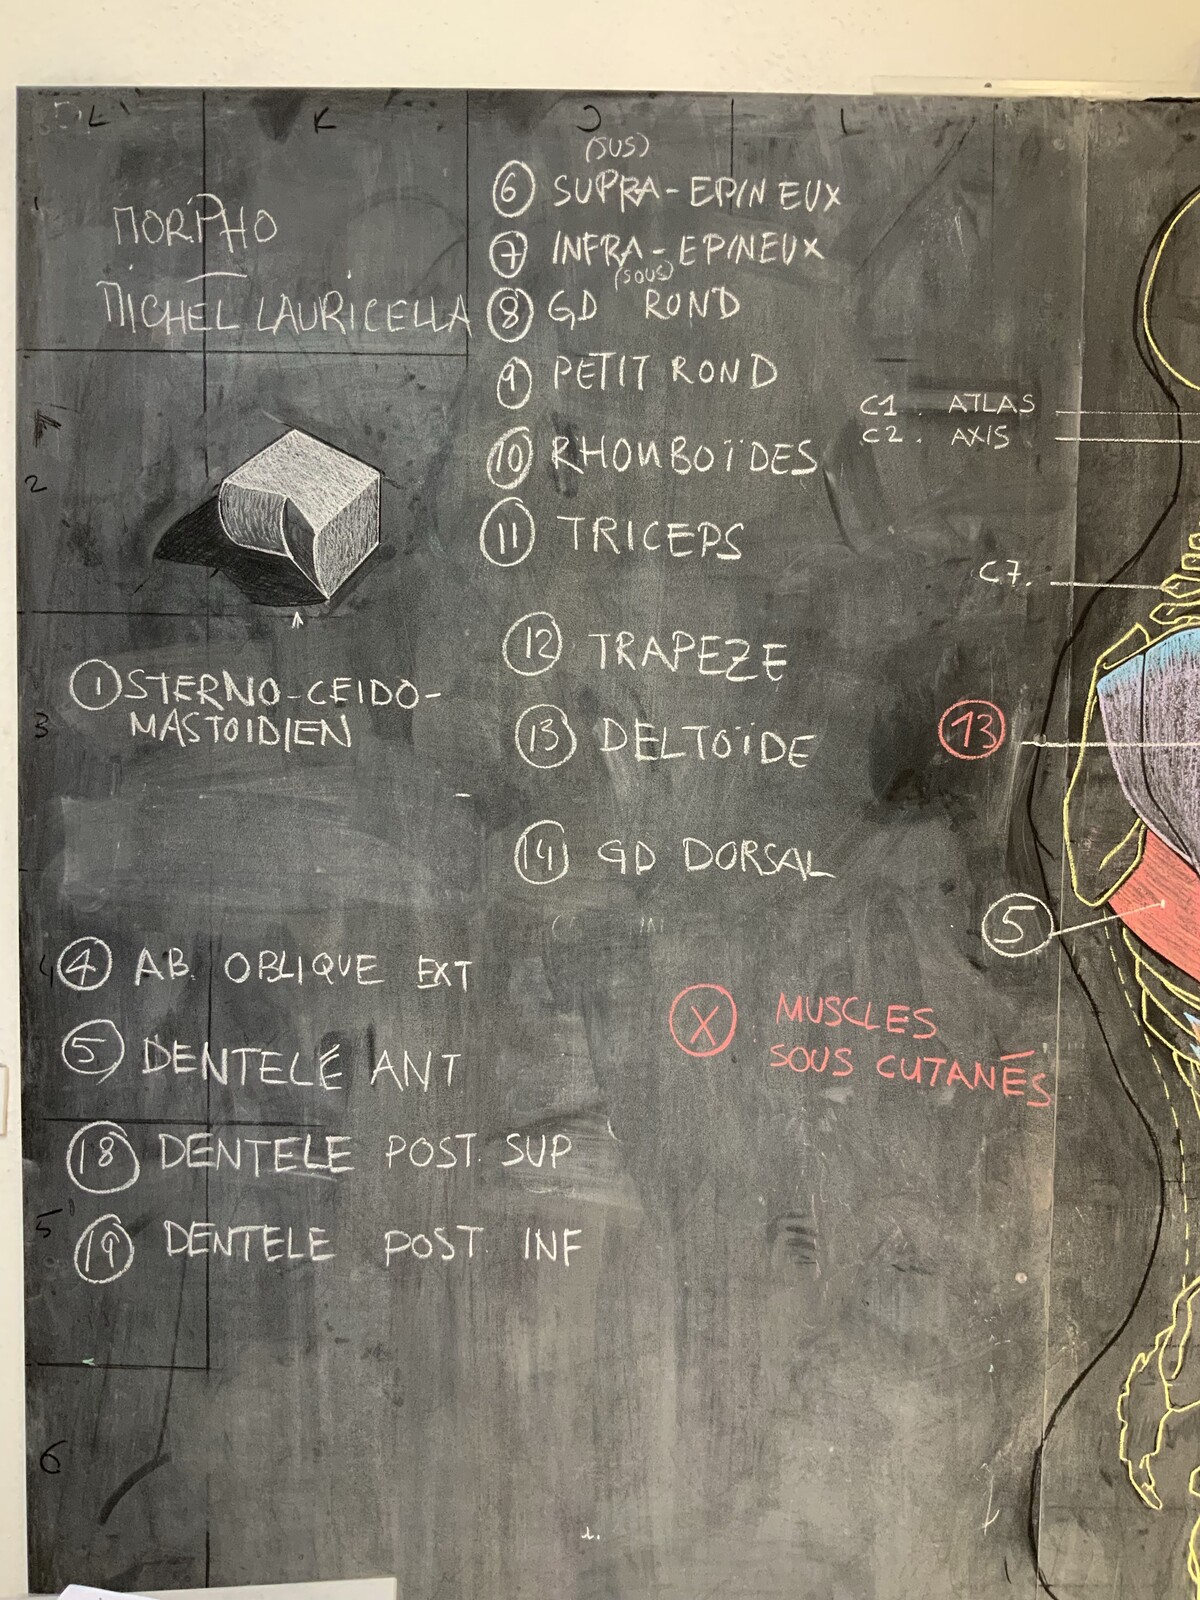 MORPHO
MICHEL LAURICELLA
① STERNO-CEIDO-
MASTOIDIEN
④ AB. OBLIQUE EXT
⑤ DENTELÉ ANT
⑱ DENTELE POST. SUP
⑲ DENTELE POST. INF
(SUS)
⑥ SUPRA-EPINEUX
⑦ INFRA-EPINEUX
(SOUS)
⑧ GD ROND
⑨ PETIT ROND
⑩ RHOMBOÏDES
⑪ TRICEPS
⑫ TRAPEZE
⑬ DELTOÏDE
⑭ GD DORSAL
Ⓧ MUSCLES
SOUS CUTANÉS
C1. ATLAS
C2. AXIS
C7.
⑬
⑤
K
2
3
4
5
6